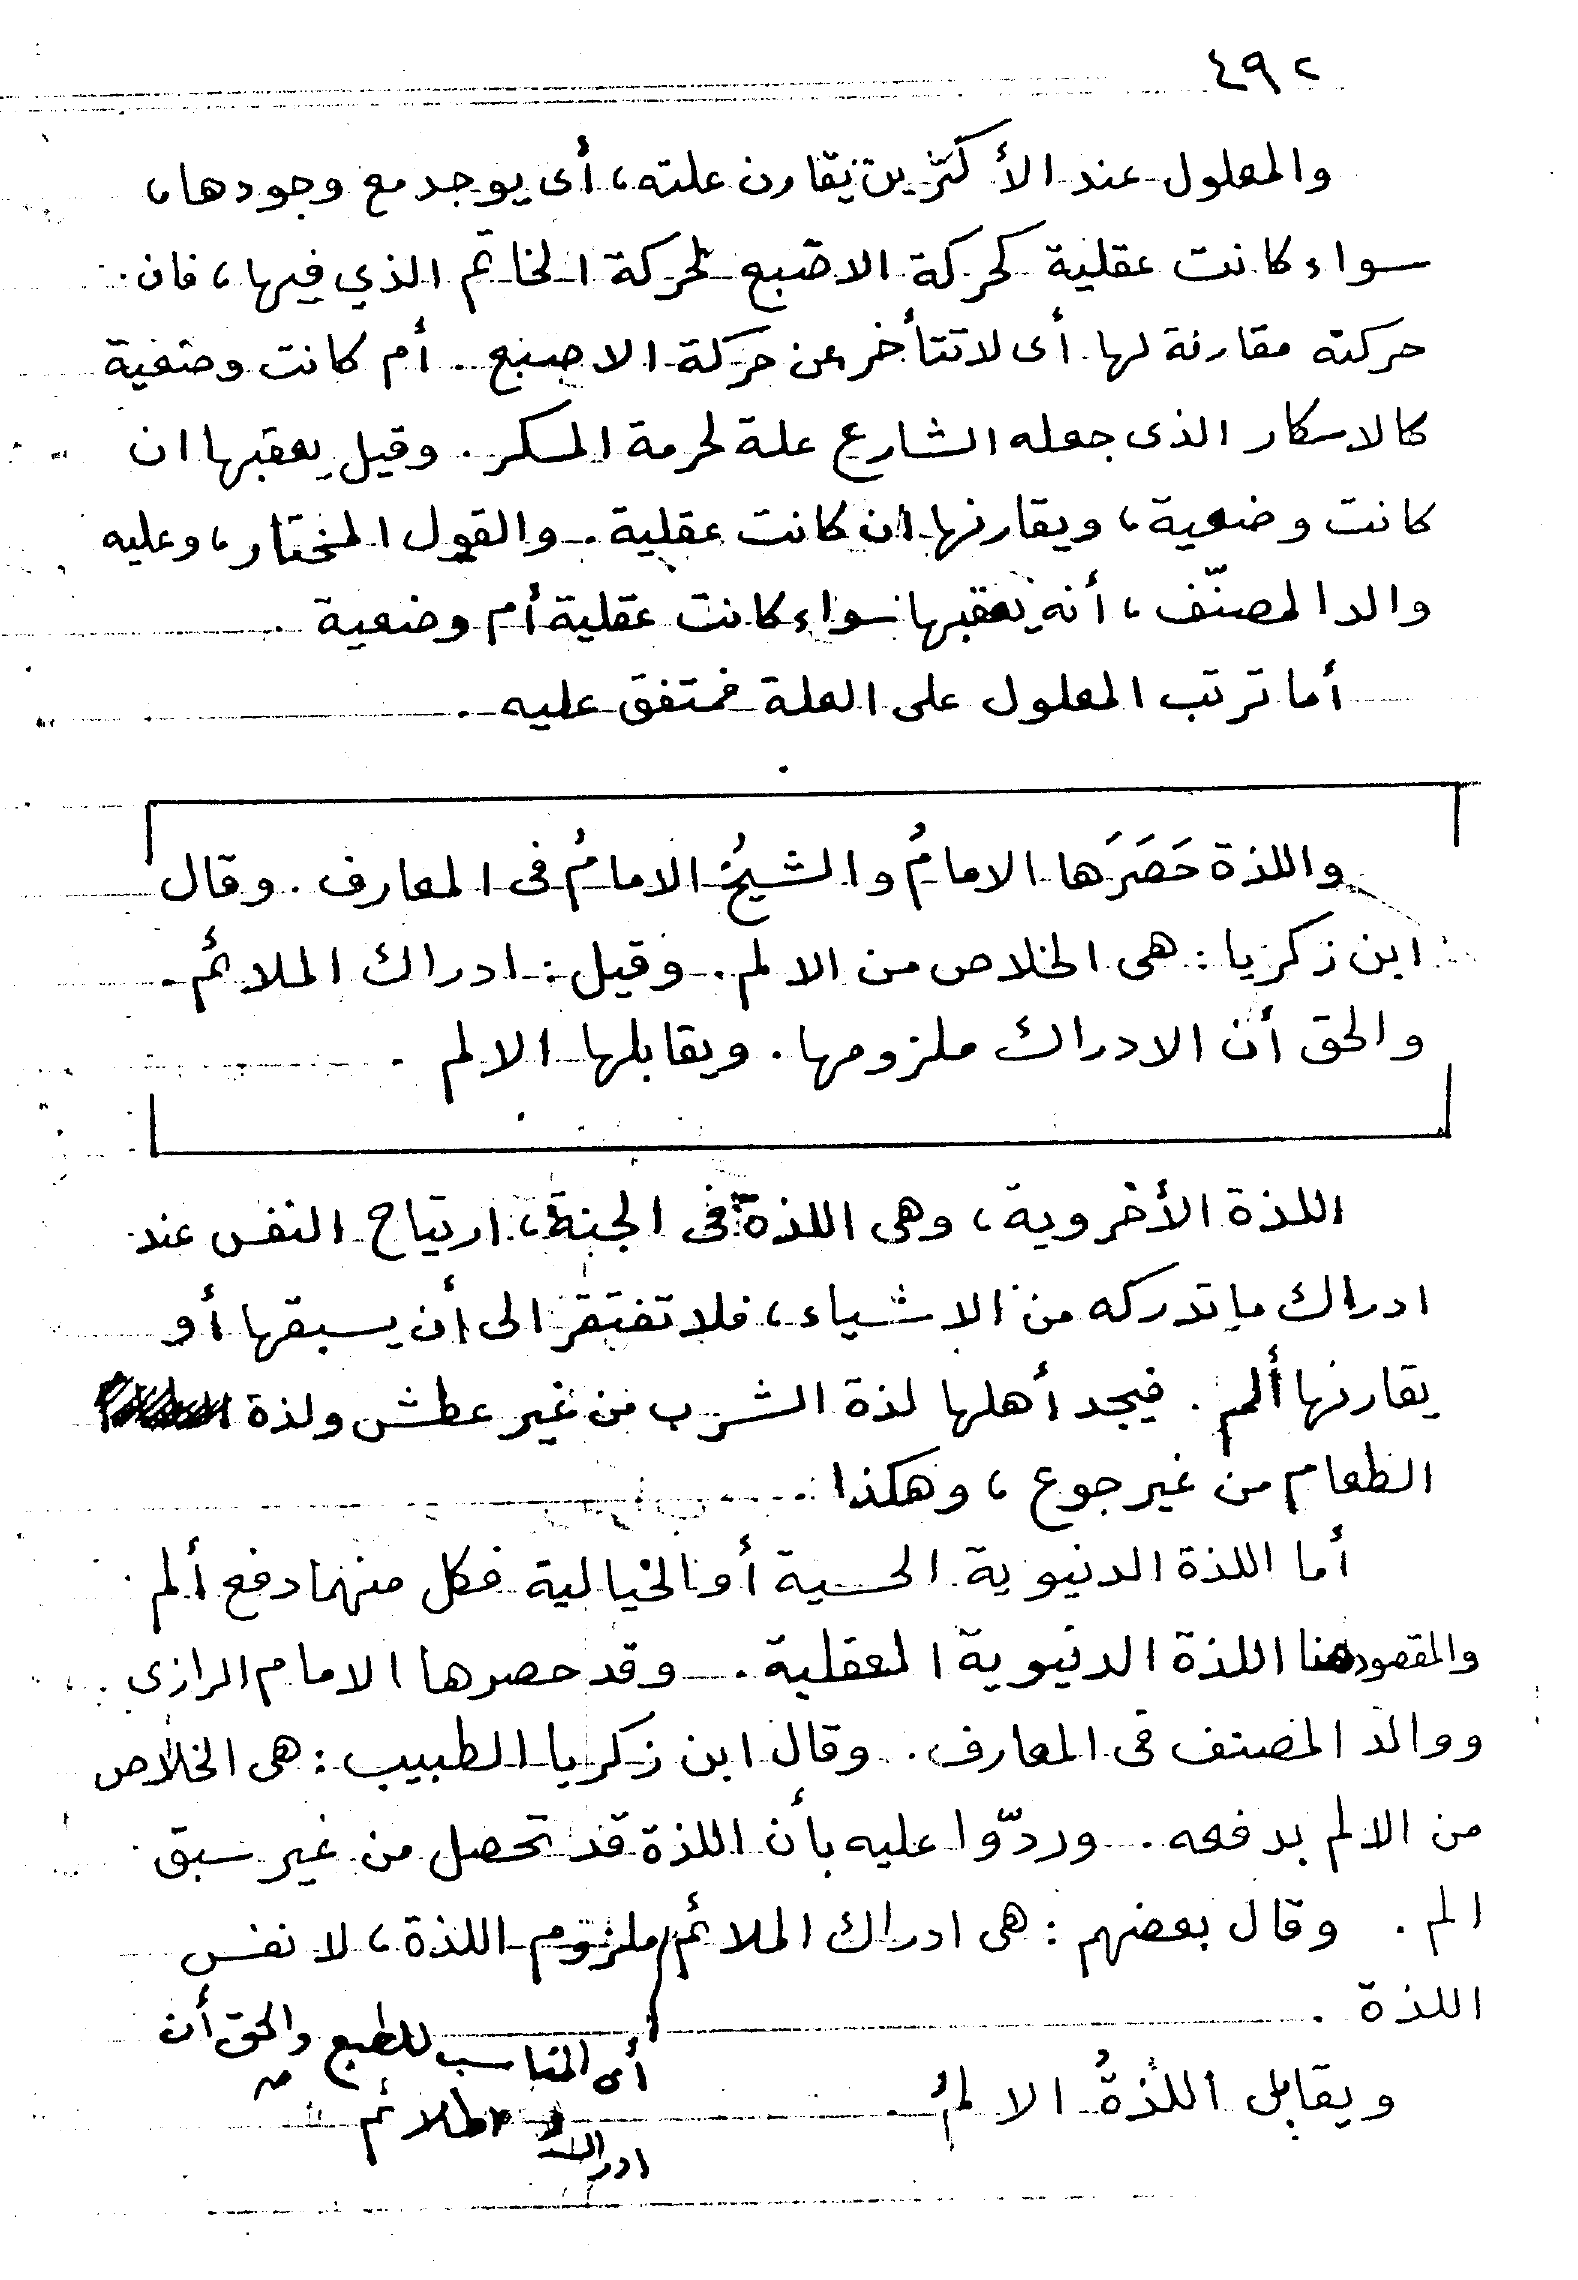 ٤٩٢
والمعلول عند الأكثرين يقارن علته، أى يوجد مع وجودها،
سواء كانت عقلية كحركة الاصبع لحركة الخاتم الذي فيها، فان
حركته مقارنة لها أى لا تتأخر عن حركة الاصبع. أم كانت وضعية
كالاسكار الذى جعله الشارع علة لحرمة المسكر. وقيل يعقبها ان
كانت وضعية، ويقارنها ان كانت عقلية. والقول المختار، وعليه
والد المصنّف، أنه يعقبها سواء كانت عقلية أم وضعية.
أما ترتب المعلول على العلة فمتفق عليه.
واللذة حَصَرَها الامامُ والشيخُ الامامُ فى المعارف. وقال
ابن زكريا: هى الخلاص من الالم. وقيل: ادراك الملائم.
والحق أن الادراك ملزومها. ويقابلها الالم.
اللذة الأخروية، وهى اللذة فى الجنة، ارتياح النفس عند
ادراك ما تدركه من الاشياء، فلا تفتقر الى أن يسبقها أو
يقارنها ألم. فيجد أهلها لذة الشرب من غير عطش ولذة
الطعام من غير جوع، وهكذا.
أما اللذة الدنيوية الحسية أو الخيالية فكل منهما دفع ألم
والمقصود هنا اللذة الدنيوية العقلية. وقد حصرها الامام الرازى
ووالد المصنف فى المعارف. وقال ابن زكريا الطبيب: هى الخلاص
من الالم بدفعه. وردّوا عليه بأن اللذة قد تحصل من غير سبق
الم. وقال بعضهم: هى ادراك الملائم ملزوم اللذة، لا نفس
اللذة.
أى المناسب للطبع والحق أن
ادراك الملائم
ويقابل اللذةُ الالمُ.